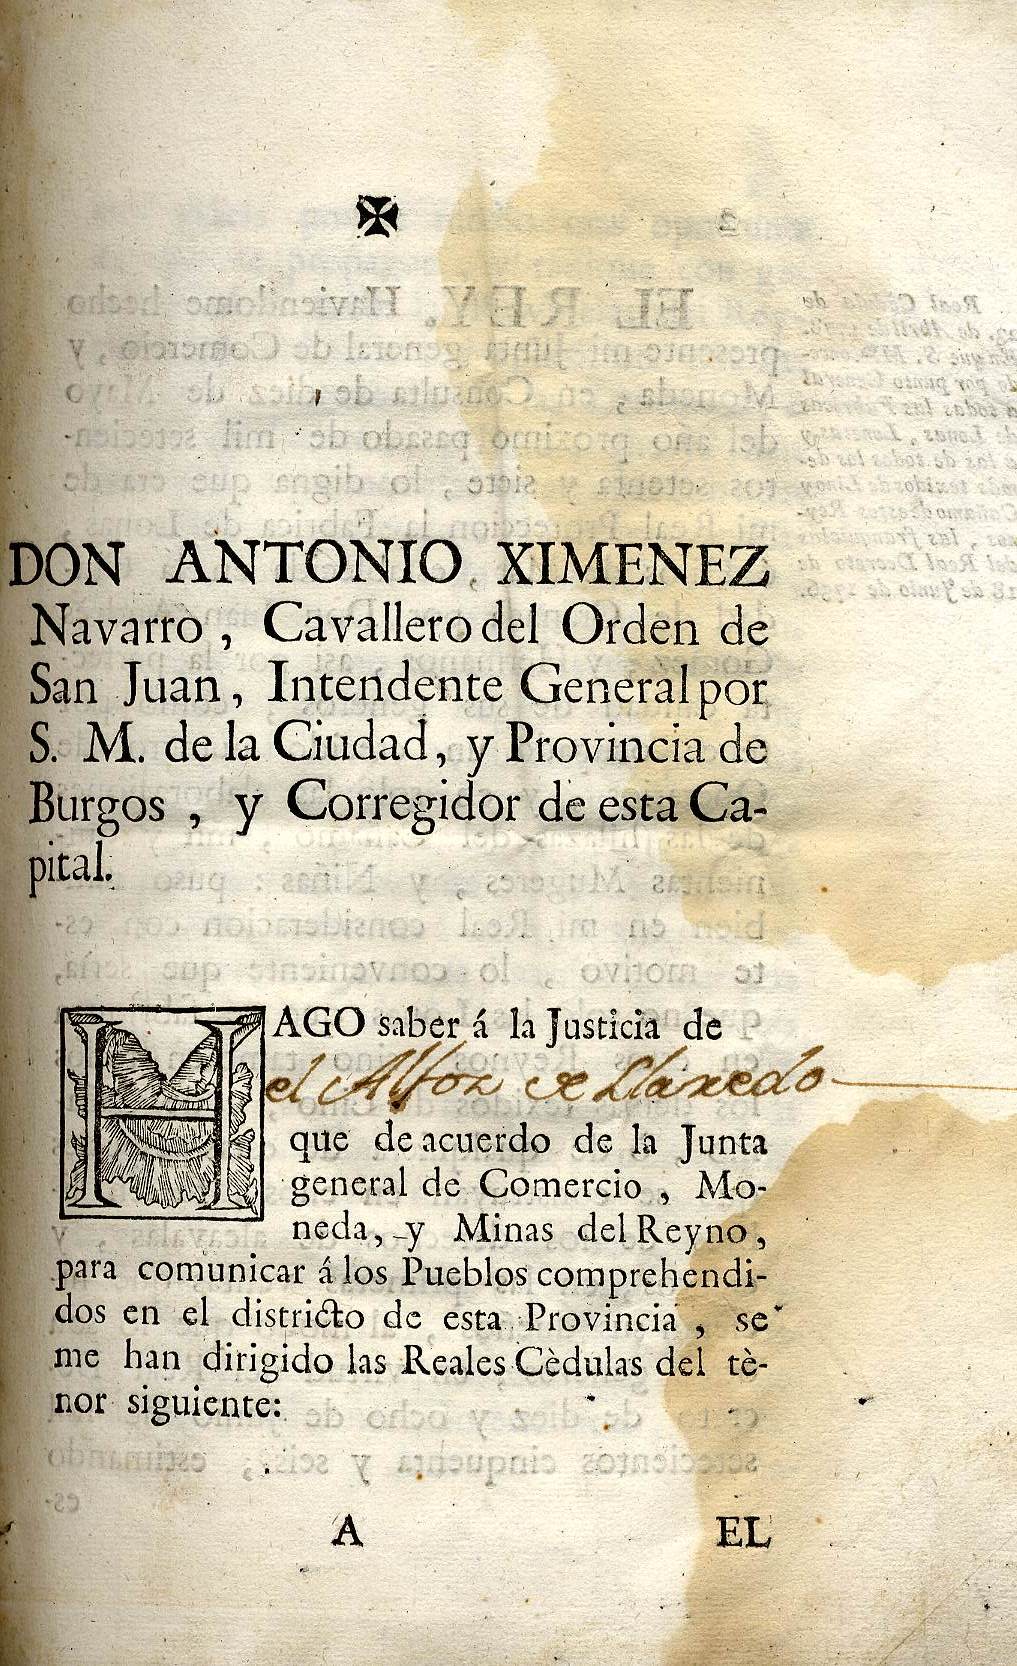 ✠
DON ANTONIO XIMENEZ
Navarro, Cavallero del Orden de
San Juan, Intendente General por
S. M. de la Ciudad, y Provincia de
Burgos, y Corregidor de esta Ca-
pital.
HAGO saber á la Justicia de
el Alfoz de Llaredo
que de acuerdo de la Junta
general de Comercio, Mo-
neda, y Minas del Reyno,
para comunicar á los Pueblos comprehendi-
dos en el districto de esta Provincia, se
me han dirigido las Reales Cèdulas del tè-
nor siguiente:
A EL